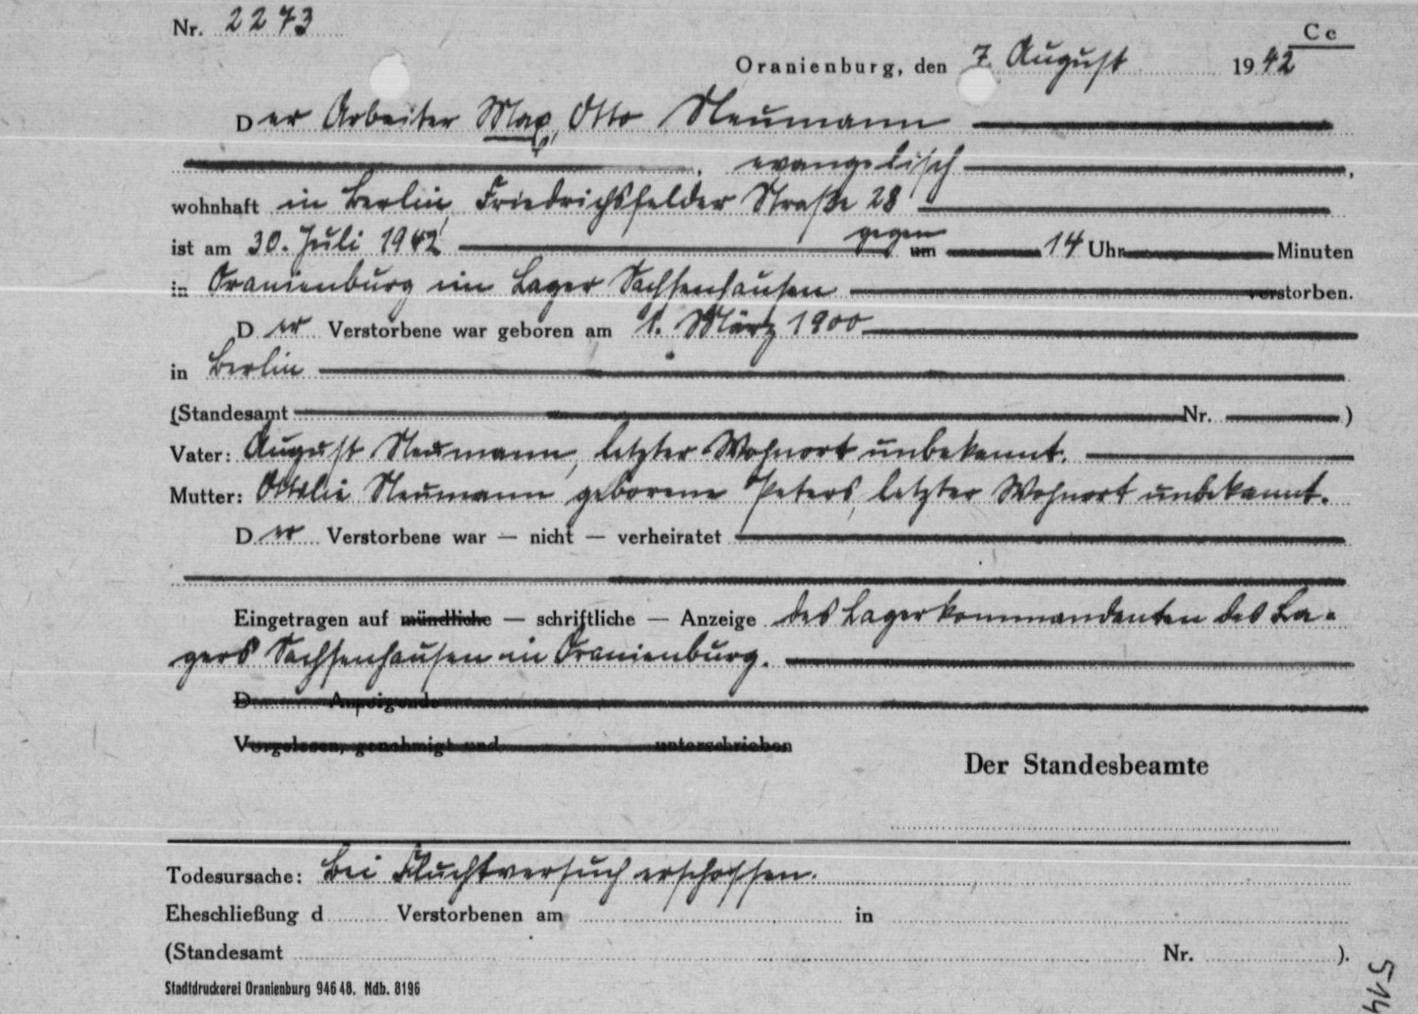 Nr. 2273
Cc
Oranienburg, den 7. August 1942
Der Arbeiter Max, Otto Neumann
, evangelisch,
wohnhaft in Berlin, Friedrichsfelder Straße 28
ist am 30. Juli 1942 gegen um 14 Uhr Minuten
in Oranienburg im Lager Sachsenhausen verstorben.
Der Verstorbene war geboren am 1. März 1900
in Berlin
(Standesamt Nr. )
Vater: August Neumann, letzter Wohnort unbekannt.
Mutter: Ottilie Neumann geborene Peters, letzter Wohnort unbekannt.
Der Verstorbene war — nicht — verheiratet
Eingetragen auf mündliche — schriftliche — Anzeige des Lagerkommandanten des La-
gers Sachsenhausen in Oranienburg.
D Anzeigende
Vorgelesen, genehmigt und unterschrieben
Der Standesbeamte
Todesursache: Bei Fluchtversuch erschossen.
Eheschließung d Verstorbenen am in
(Standesamt Nr. ).
Stadtdruckerei Oranienburg 946 48. Ndb. 8196
514